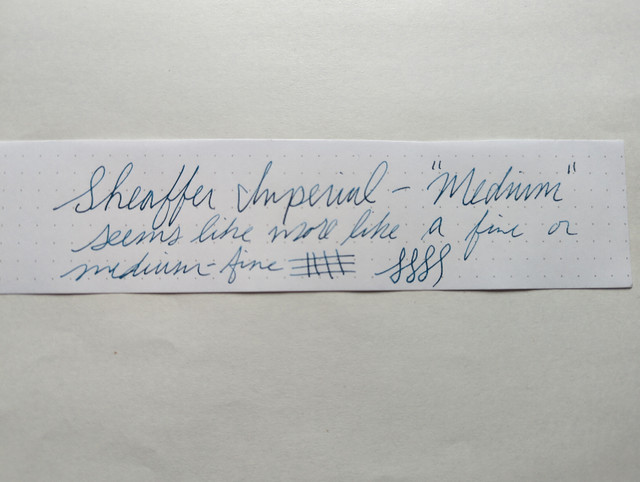 Sheaffer Imperial - "Medium"
seems like more like a fine or
medium-fine